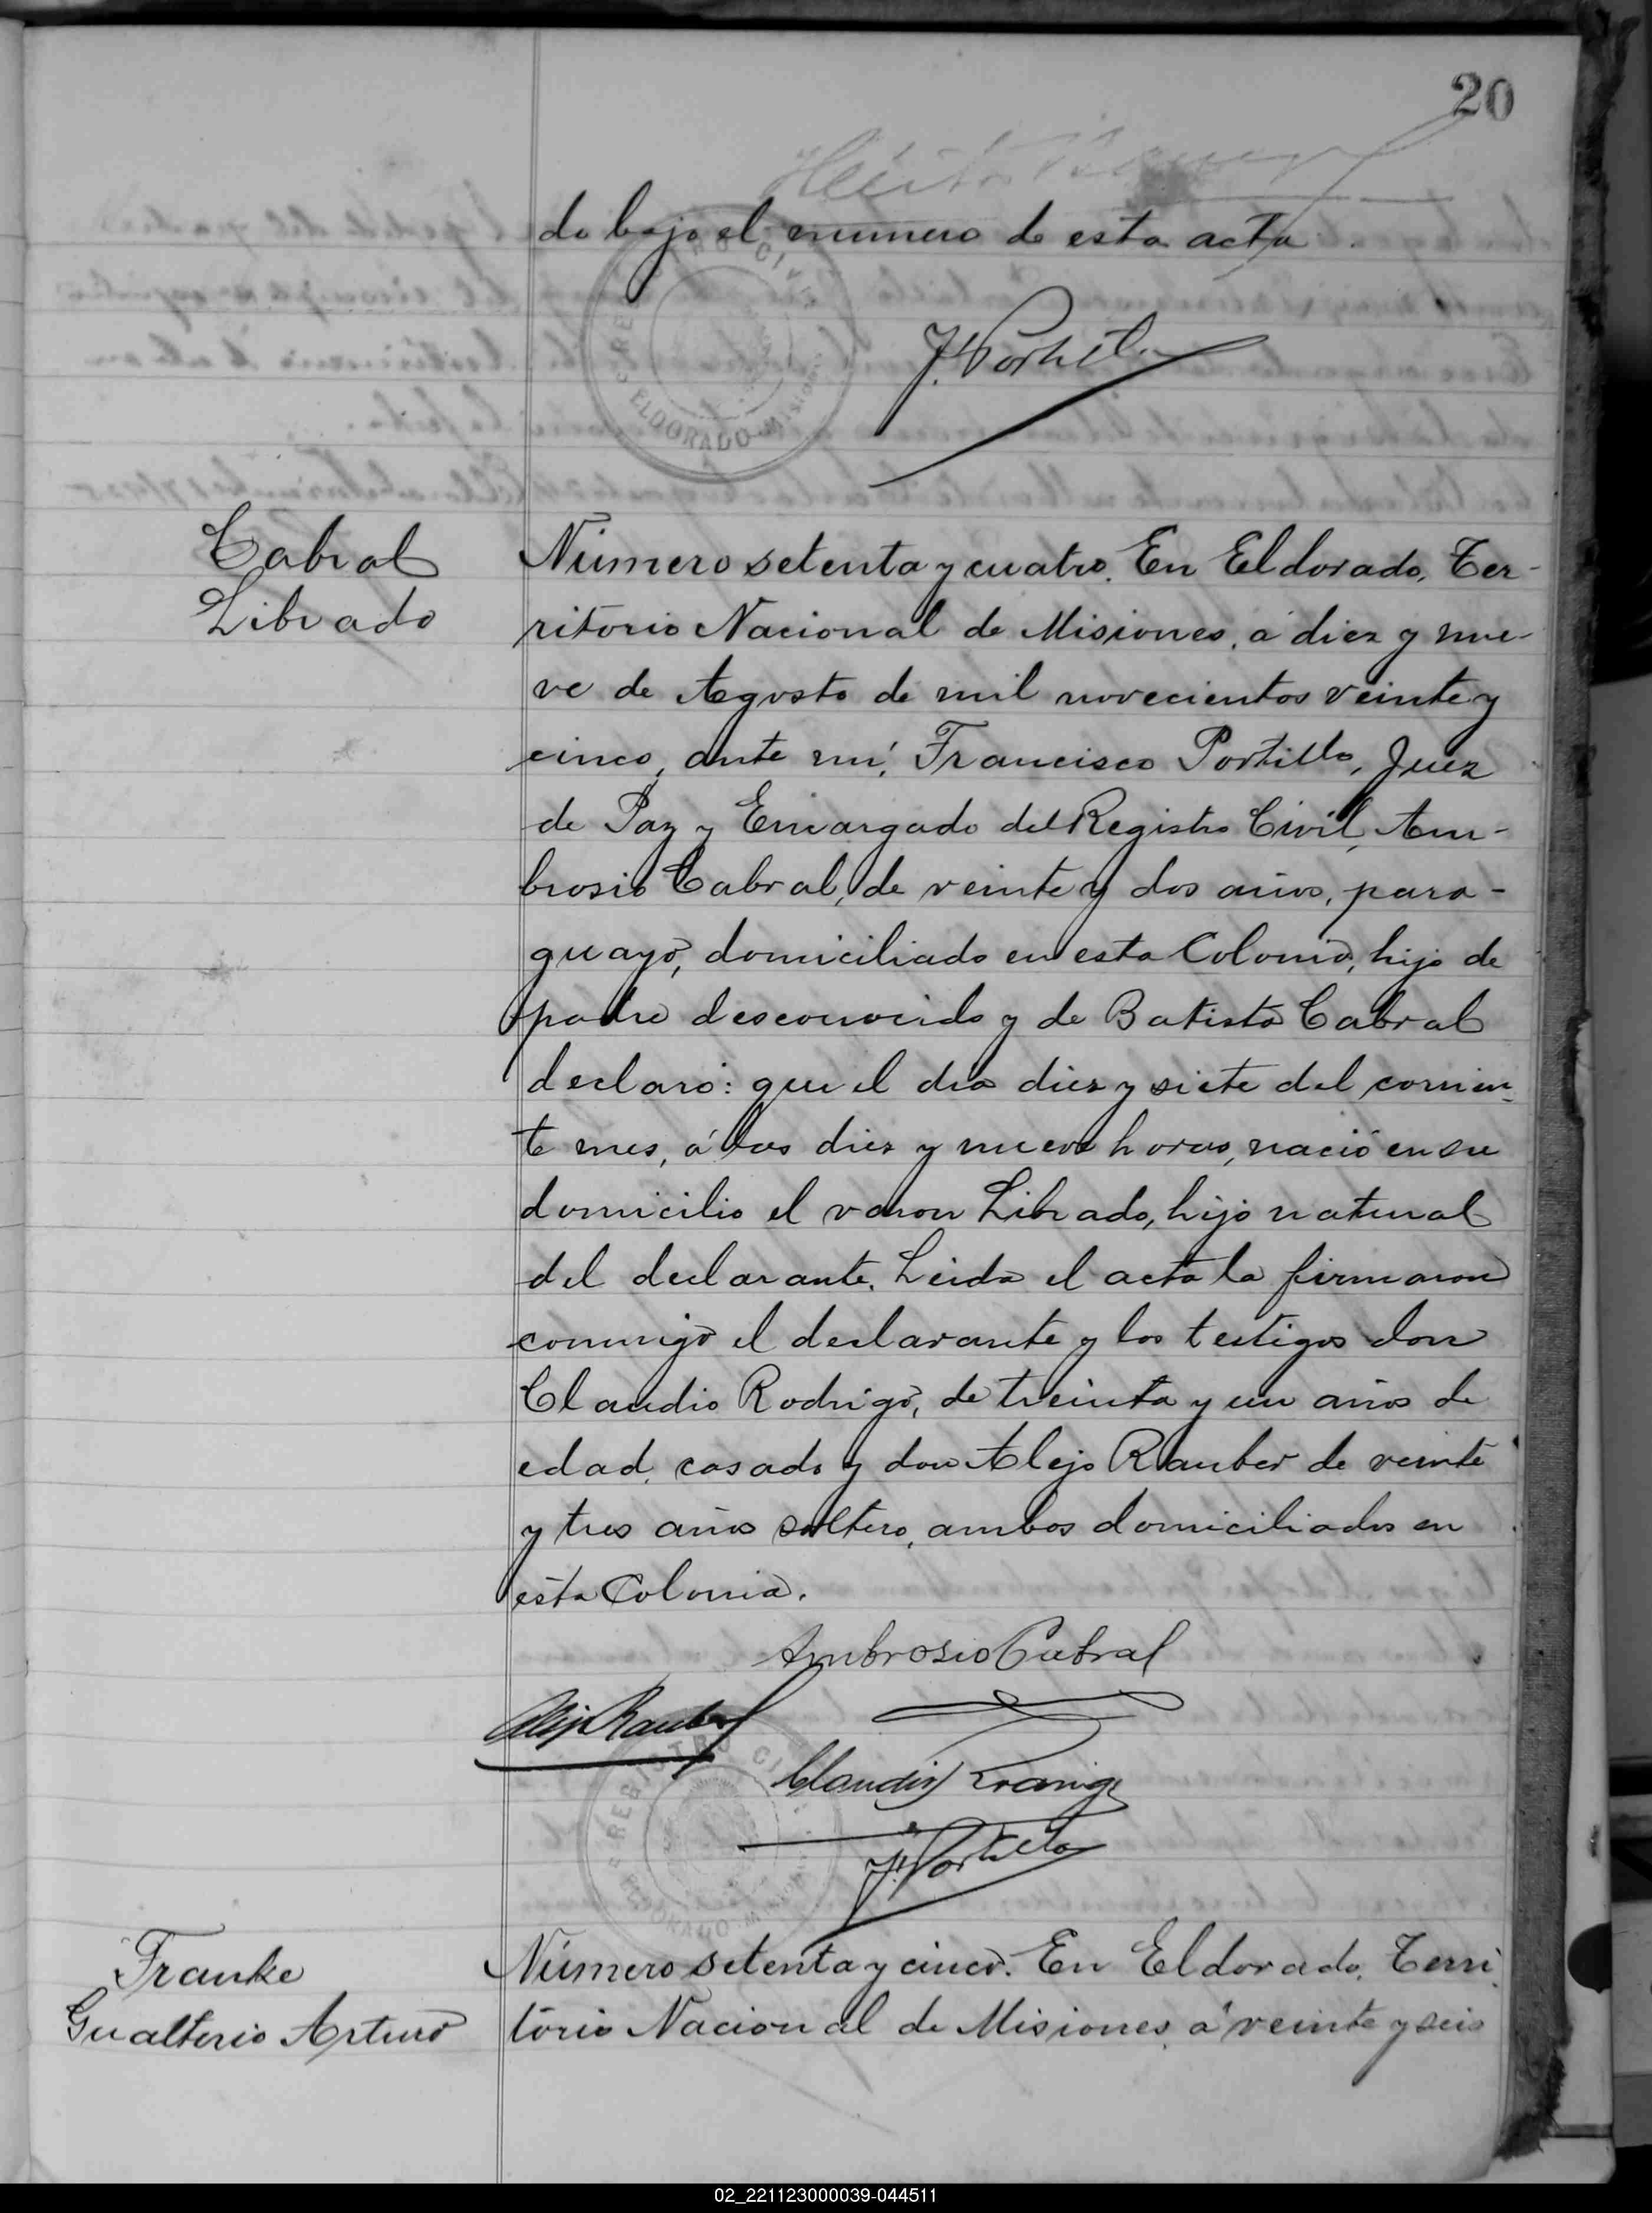 20
do bajo el numero de esta acta.
REGISTRO CIVIL
ELDORADO-Misiones
F. Portillo
Cabral
Librado
Número setenta y cuatro. En Eldorado, Ter-
ritorio Nacional de Misiones, á diez y nue-
ve de Agosto de mil novecientos veinte y
cinco, ante mí, Francisco Portillo, Juez
de Paz y Encargado del Registro Civil, Am-
brosio Cabral, de veinte y dos años, para-
guayo, domiciliado en esta Colonia, hijo de
padre desconocido y de Batista Cabral
declaró: que el dia diez y siete del corrien-
te mes, á las diez y nueve horas, nació en su
domicilio el varon Librado, hijo natural
del declarante. Leida el acta la firmaron
conmigo el declarante y los testigos don
Claudio Rodrigo, de treinta y un años de
edad, casado y don Alejo Rauber de veinte
y tres años soltero, ambos domiciliados en
esta Colonia.
Ambrosio Cabral
Alejo Rauber
Claudio
REGISTRO CIVIL
ELDORADO-Misiones
F. Portillo
Franke
Gualterio Arturo
Número setenta y cinco. En Eldorado, Terri
torio Nacional de Misiones, á veinte y seis
02_221123000039-044511